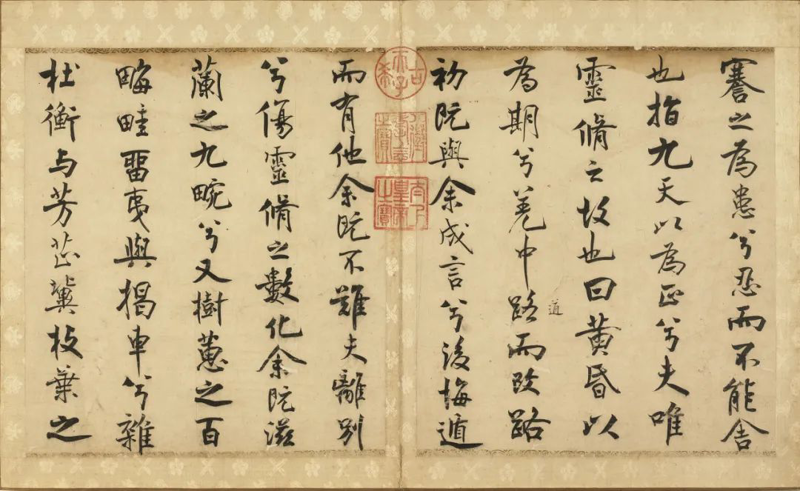 謇之為患兮忍而不能舍
也指九天以為正兮夫唯
靈脩之故也曰黃昏以
為期兮羌中路而改路
道
初既與余成言兮後悔遁
而有他余既不難夫離別
兮傷靈脩之數化余既滋
蘭之九畹兮又樹蕙之百
畮畦留夷與揭車兮雜
杜衡与芳芷冀枝葉之
古希天子
壽